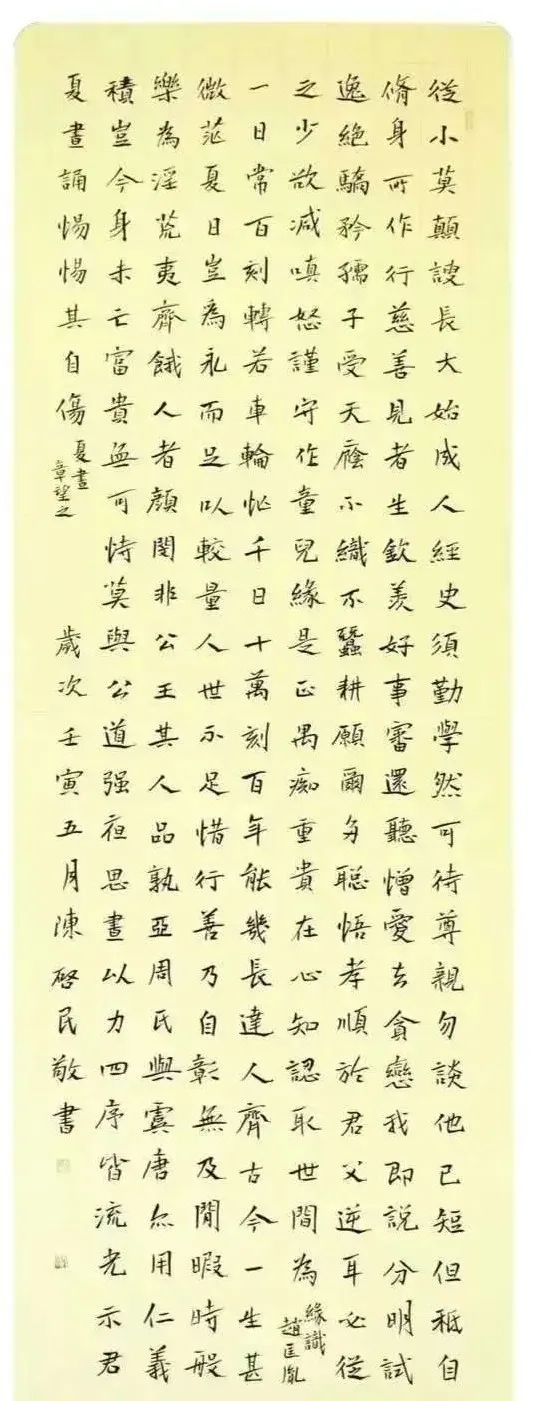 從小莫顛謏長大始成人經史須勤學然可待尊親勿談他已短但秪自
脩身所作行慈善見者生欽羨好事審還聽憎愛去貪戀我即說分明試
逸絕驕矜孺子受天廕不織不蠶耕願爾多聰悟孝順於君父逆耳必從
之少欲减嗔怒謹守作童兒緣是正愚痴重貴在心知認取世間為
緣識
趙匡胤
一日常百刻轉若車輪忙千日十萬刻百年能幾長達人齊古今一生甚
微茫夏日豈為永而足以較量人世不足惜行善乃自彰無及閒暇時般
樂為淫荒夷齊餓人者顏閔非公王其人品孰亞周氏與虞唐尔用仁義
積豈今身未亡富貴無可恃莫與公道强夜思晝以力四序皆流光示君
夏晝誦惕惕其自傷
夏晝
章望之
歲次壬寅五月陳啓民敬書